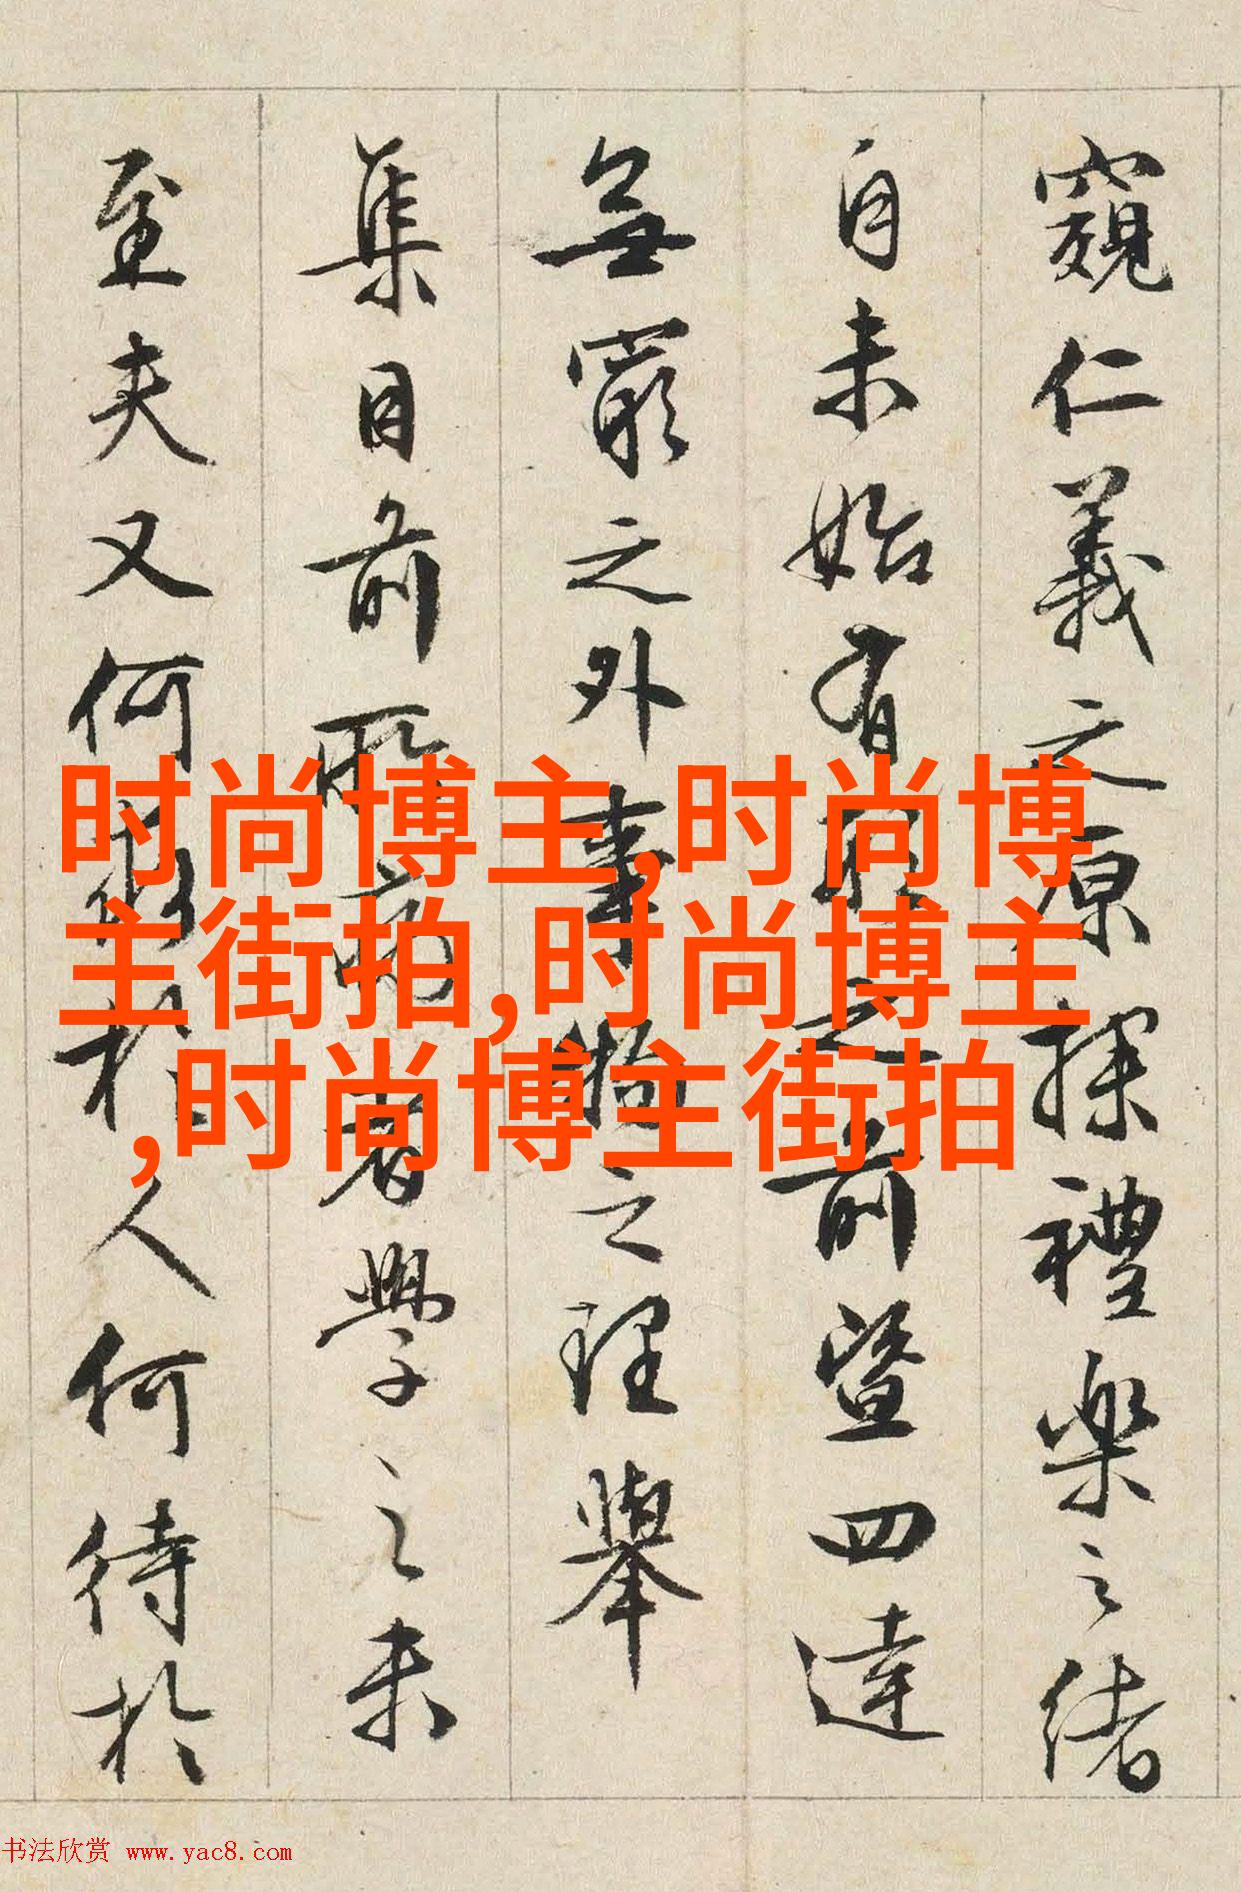 窺仁義之原探禮樂之緒
自未始有形之前暨四達
無窮之外事物之理舉
集目前所病者學之未
至夫又何求於人何待於
时尚博主,时尚博
主街拍,时尚博主
,时尚博主街拍
书法欣赏 www.yac8.com